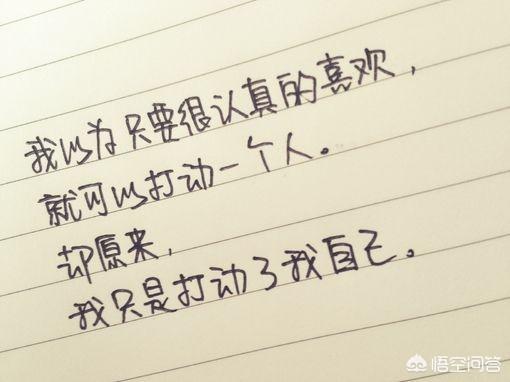 我以为只要很认真的喜欢，
就可以打动一个人。
却原来，
我只是打动了我自己。
悟空问答